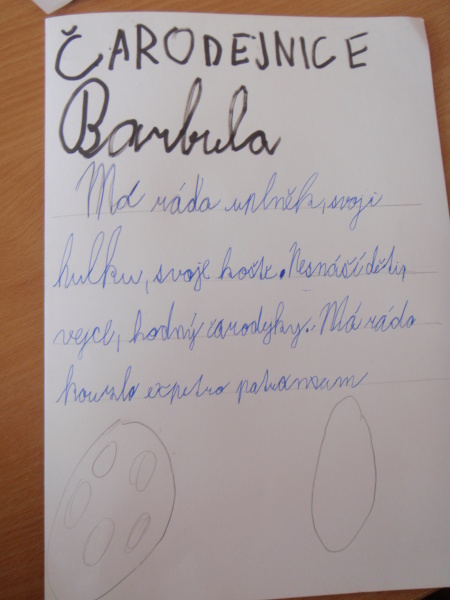 ČARODEJNICE
Barbula
Má ráda uplněk, svoji
hulku, svoje košte. Nesnáší děti,
vejce, hodný čarodyky. Má ráda
kouzlo expetro patronum